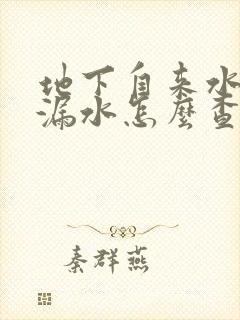 地下自来水
漏水怎麽查
秦群燕